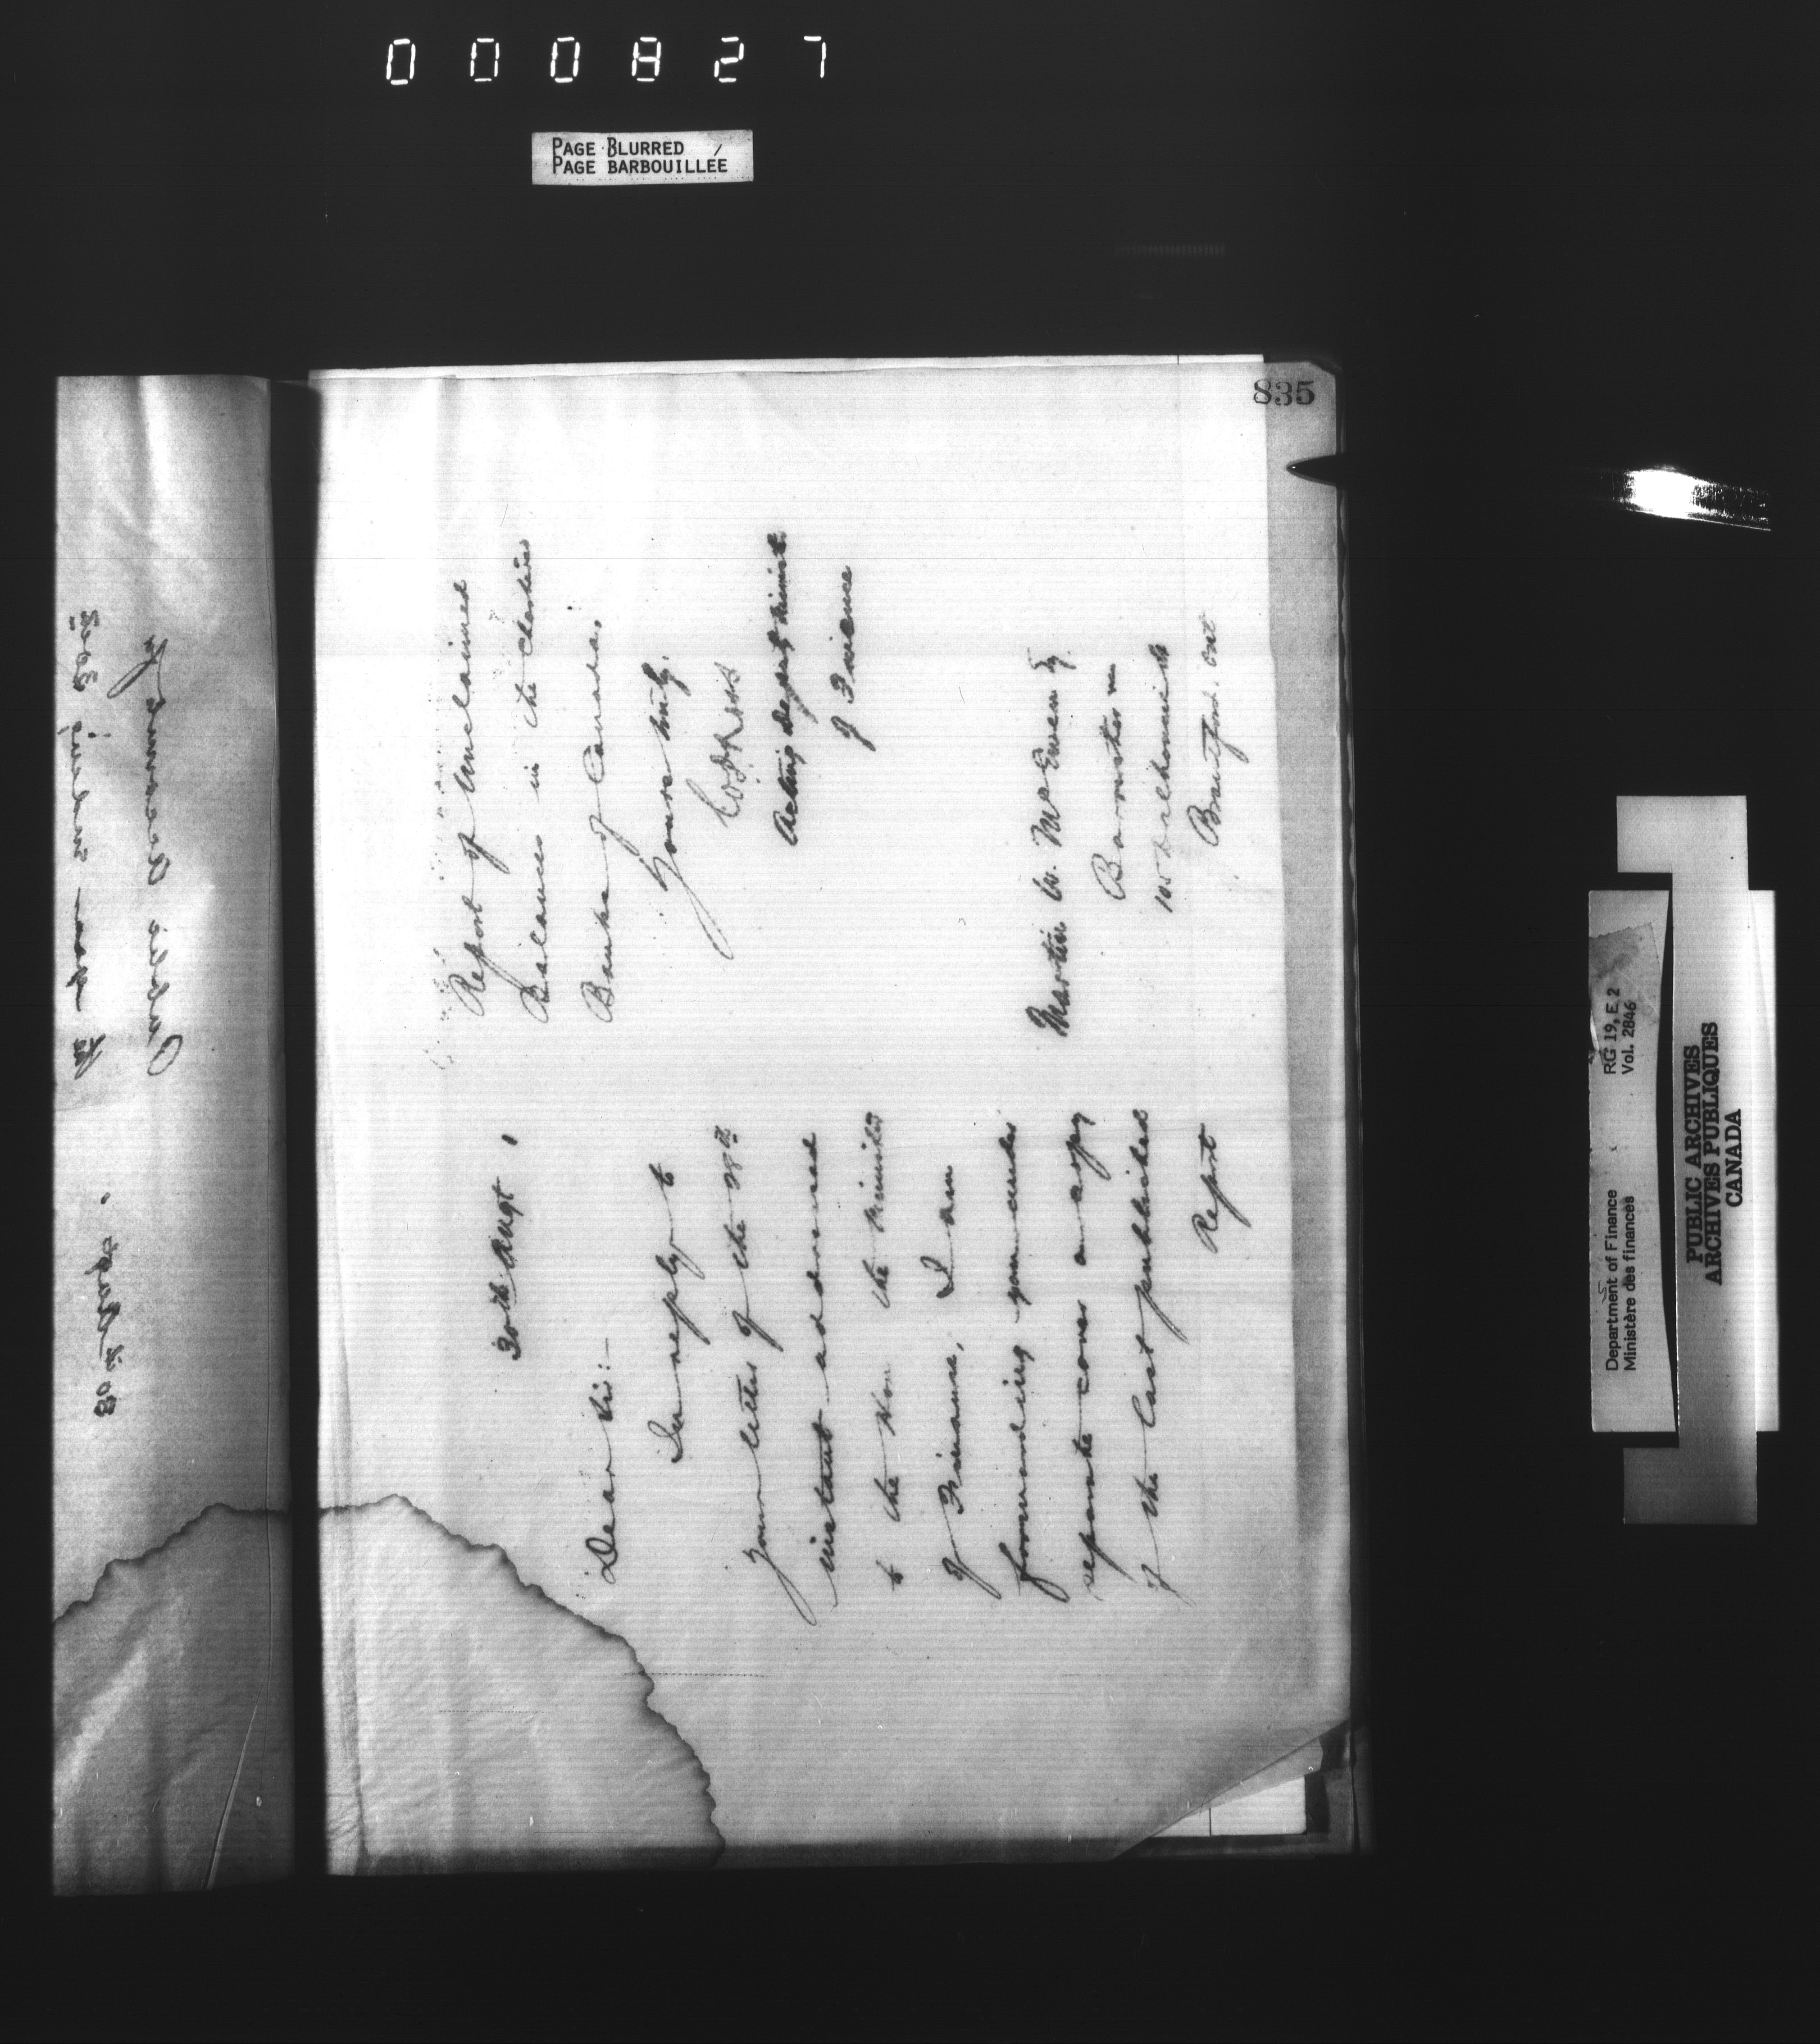 000827
PAGE BLURRED
PAGE BARBOUILLÉE
835
30th Augt 1
Dear Sir:-
In reply to
your letter of the 28th
instant addressed
to the Hon. the Minister
of Finance, I am
forwarding you under
separate cover a copy
of the last published
Report
Report of Unclaimed
Balances in the Chartered
Banks of Canada.
Yours truly,
Acting Deputy Minister
of Finance
Martin W. McEwen Esq
Barrister
105 Dalhousie St
Brantford, Ont
Public Accounts for
30th Augt.
Department of Finance
Ministère des finances
RG 19, E 2
Vol. 2846
PUBLIC ARCHIVES
ARCHIVES PUBLIQUES
CANADA